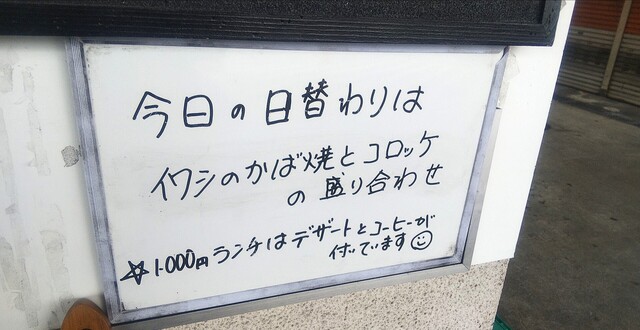 今日の日替わりは
イワシのかば焼とコロッケ
の盛り合わせ
☆1.000円ランチはデザートとコーヒーが
付いています☺